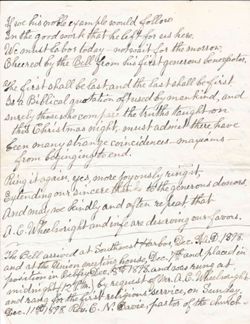 If we his noble example would follow
In the good work that he left for us here,
We must labor today - not wait for the morrow,
Cheered by the Bell from his first generous
The first shall be last, and the last shall be first
Is a Biblical quotation of used by mankind, and
surely those who compare the truths taught on
this Christmas night, must admit there have
been many strange coincidences
from beginning to end.
Ring it again, yes, more joyously ring it,
Extending our sincere thanks to the generous donors,
And may we kindly and often repeat that
A.C. Wheelwright and wife are deserving our favors.
The Bell arrived at Southwest Harbor, Dec. 1878.
and at the Union meeting house, Dec. 7th and placed in
position in Belfry Dec. 1878, and was rung at
midnight, by request of Mrs. A.C. Wheelwright
and rang for the first religious service, on Sunday,
Dec. 1878. Rev. E. N. Davis, pastor of the church